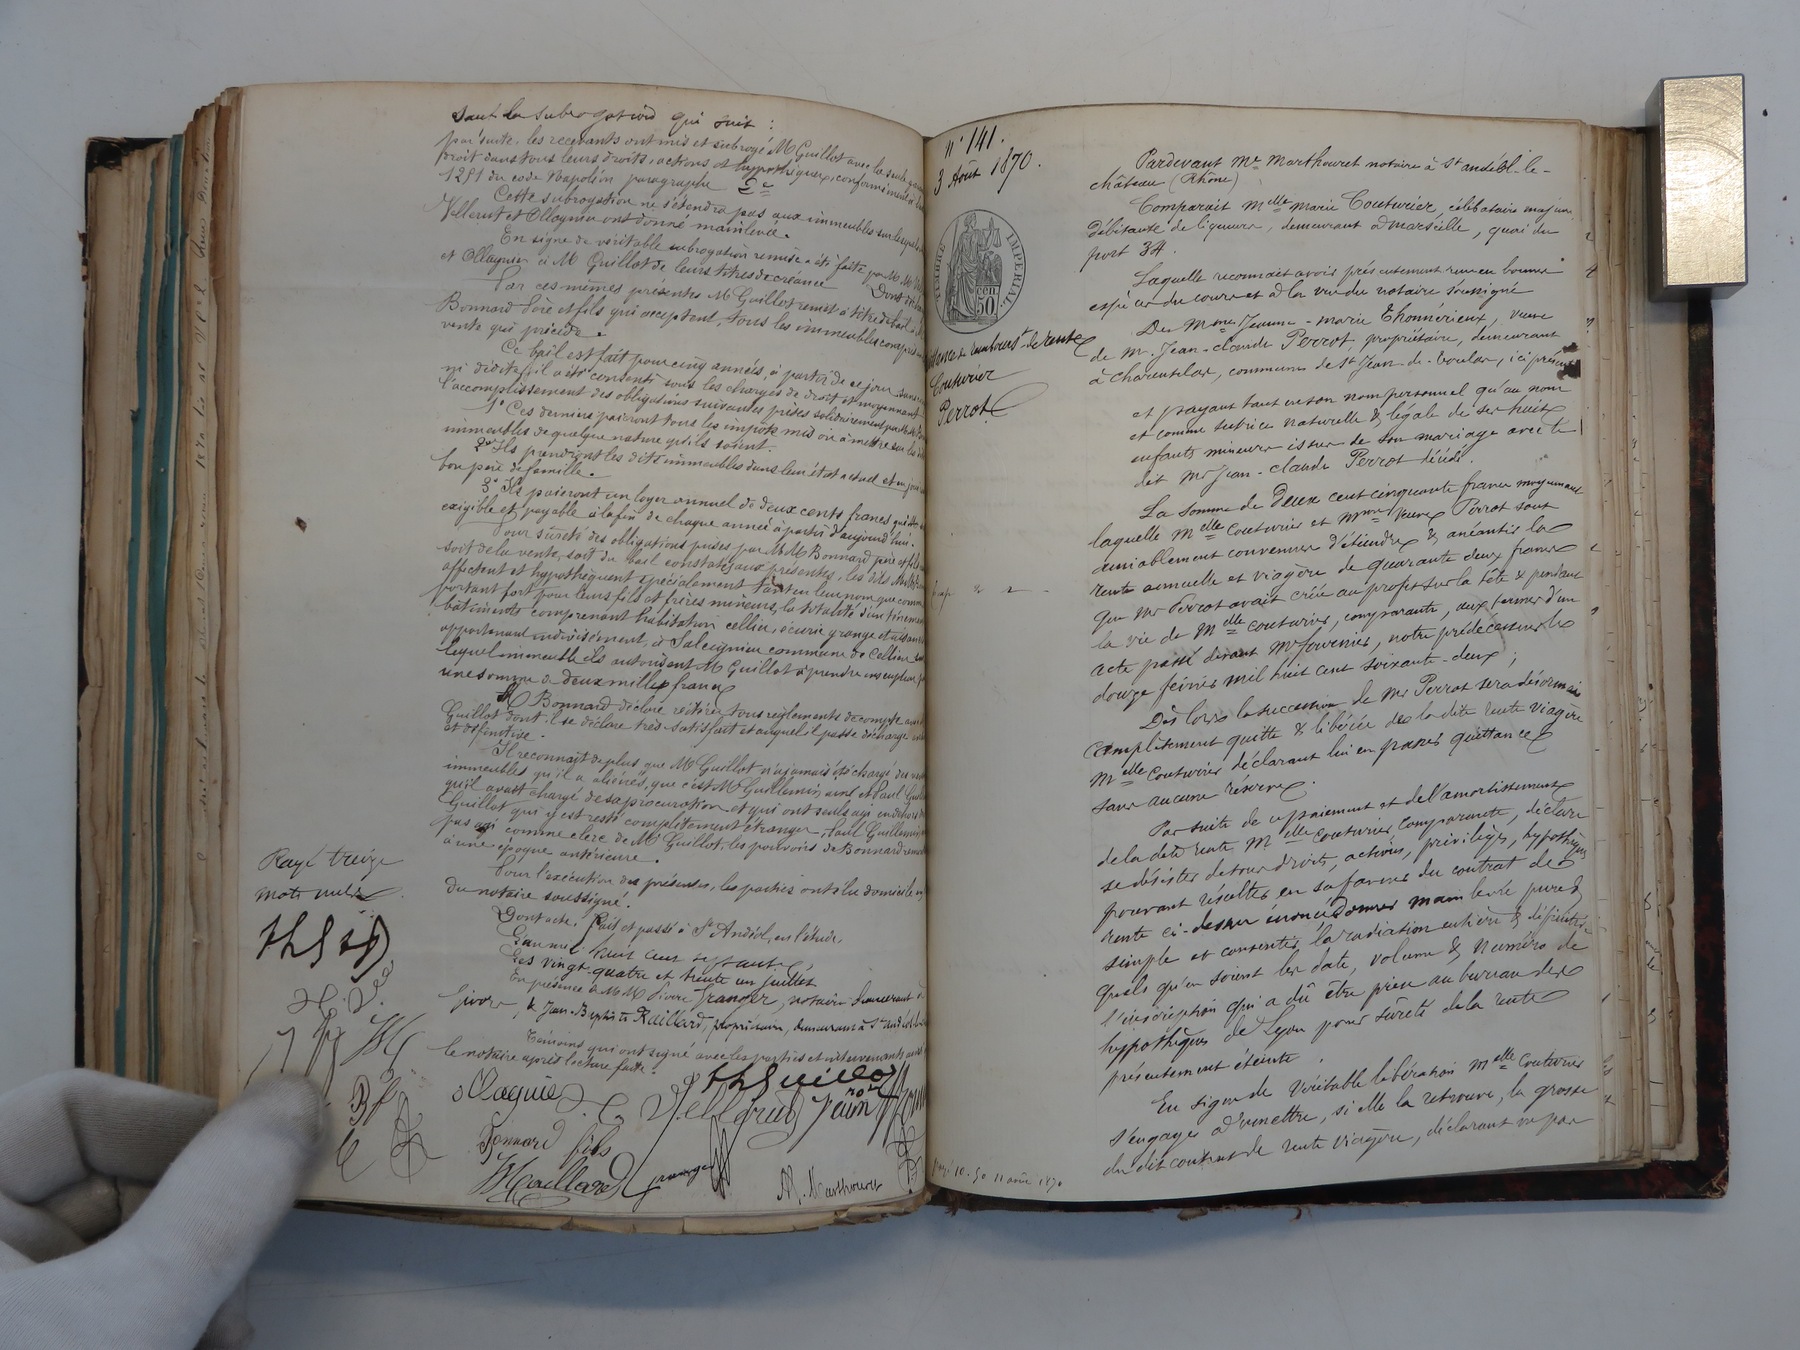 sauf la subrogation qui suit :
par suite, les recevants ont mis et subrogé M Guillot avec la
droit dans tous leurs droits, actions et hypothèques, conformément à
1251 du code Napoléon paragraphe 2e
Cette subrogation ne s'étendra pas aux immeubles sur lesquels
Vellerut et Ollagnier ont donné mainlevée.
En signe de véritable subrogation remise a été faite par M. M.
et Ollagnier à M Guillot de leurs titres de créance Dont
Par ces mêmes présentes M Guillot remet à titre de bail à
Bonnard père et fils qui acceptent, tous les immeubles compris
vente qui précède.
Ce bail est fait pour cinq années, à partir de ce jour, sans
ni dédite, il a été consenti sous les charges de droit et moyennant
l'accomplissement des obligations suivantes prises solidairement par M. M.
1° Ces derniers paieront tous les impots mis ou à mettre sur les
immeubles de quelque nature qu'ils soient.
2° Ils prendront les dits immeubles dans leur état actuel et en
bon père de famille.
3° Ils paieront un loyer annuel de deux cents francs
exigible et payable à la fin de chaque année à partir d'aujourd'hui.
Pour sûreté des obligations prises par M M Bonnard père et fils
soit de la vente, soit du bail constatés aux présentes, les dits
affectent et hypothèquent spécialement tant en leur nom que comme
portant fort pour leurs fils et frères mineurs, la totalité d'un tènement
bâtiments comprenant habitation cellier, écurie grange et aisances
appartenant indivisément, à Saleignieu commune de Cellieu
lequel immeuble ils autorisent M Guillot à prendre inscription
une somme de deux mille francs
M Bonnard déclare réitérer tous règlements de compte avec
Guillot dont il se déclare très-satisfait et auquel il passe décharge
et définitive.
Il reconnait de plus que M Guillot n'a jamais été chargé des
immeubles qu'il a aliénés, que c'est M Guillemin ainé et Paul
qu'il avait chargé de sa procuration et qui ont seuls agi en dehors de
Guillot qui y est resté complètement étranger, Paul Guillemin
pas agi comme clerc de M Guillot, les pouvoirs de Bonnard
à une époque antérieure.
Pour l'exécution des présentes, les parties ont élu domicile en
du notaire soussigné.
Dont acte, Fait et passé à St Andéol, en l'étude,
L'an mil huit cent septante,
Les vingt-quatre et trente un juillet
En présence de M M Pierre Granger, notaire demeurant à
Givors, & Jean-Baptiste Raillard, propriétaire, demeurant à St andéol
Témoins qui ont signé avec les parties et intervenants
le notaire après lecture faite.
Rayé treize
mots nuls
Bonnard fils
n° 141.
3 Août 1870.
TIMBRE IMPÉRIAL
50 cen
de rente
Couturier
Perrot
Pardevant Me Marthouret notaire à St andéol-le-
château (Rhône)
Comparait Melle Marie Couturier, célibataire majeure
débitante de liqueurs, demeurant à Marseille, quai du
port 34.
Laquelle reconnait avoir présentement reçu en bonnes
espèces du cours et à la vue du notaire soussigné
De Mme Jeanne-marie Thonnérieux, veuve
de M. Jean-claude Perrot, propriétaire, demeurant
à Charentelas, commune de St Jean-de-toulas, ici présente
et payant tant en son nom personnel qu'au nom
et comme tutrice naturelle & légale de ses huit
enfants mineurs issus de son mariage avec le
dit Mr Jean-claude Perrot décédé.
La somme de Deux cent cinquante francs moyennant
laquelle Melle Couturier et Mme veuve Perrot sont
amiablement convenues d'éteindre & anéantir la
rente annuelle et viagère de quarante deux francs
que Mr Perrot avait créée au profit sur la tête & pendant
la vie de Melle Couturier, comparante, aux termes d'un
acte passé devant Mr fournier, notre prédécesseur le
douze février mil huit cent soixante-deux ;
Dès lors la succession de Mr Perrot sera désormais
complètement quitte & libérée de la dite rente viagère
Melle Couturier déclarant lui en passer quittance
sans aucune réserve.
Par suite de ce paiement et de l'amortissement
de la dite rente Melle Couturier, comparante, déclare
se désister de tous droits, actions, privilèges, hypothèques
pouvant résulter en sa faveur du contrat de
rente ci-dessus énoncé, donner main levée pure &
simple et consentir la radiation entière & définitive
quels qu'en soient les date, volume & numéro de
l'inscription qui a dû être prise au bureau des
hypothèques de Lyon pour sûreté de la rente
présentement éteinte.
En signe de véritable libération Melle Couturier
s'engage à remettre, si elle la retrouve, la grosse
du dit contrat de rente viagère, déclarant ne pas